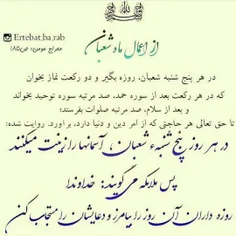 Ertebat.ba.rab
از اعمال ماه شعبان
در هر پنج شنبه شعبان، روزه بگیر و دو رکعت نماز بخوان
که در هر رکعت بعد از سوره حمد، صد مرتبه سوره توحید بخواند
و بعد از سلام، صد مرتبه صلوات بفرستد؛
تا حق تعالی هر حاجتی که از امر دین و دنیا دارد، برآورد. روایت شده:
در هر روز پنج شنبهء شعبان، آسمانها را زینت میکنند
پس ملائکه می گویند: خداوندا
روزه داران آن روز را بیامرز و دعایشان را مستجاب کن